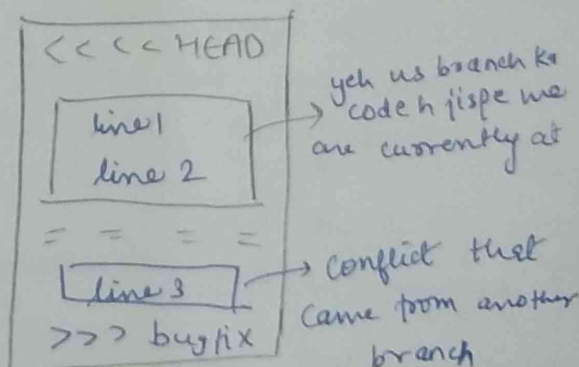 < < < < HEAD
line 1
line 2
= = = =
line 3
> > > bugfix
yeh us branch ka
code h jispe we
are currently at
conflict that
came from another
branch